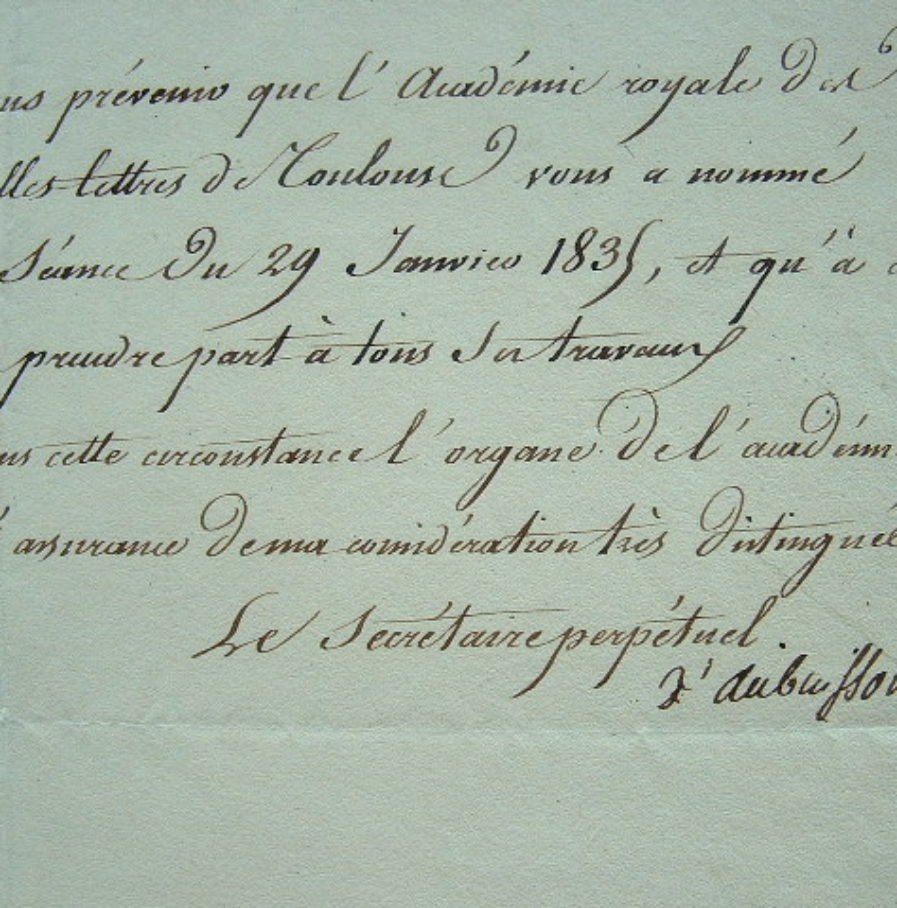 ous prévenir que l'Académie royale des
lles-lettres de Toulouse vous a nommé
Séance du 29 Janvier 1835, et qu'à
prendre part à tous ses travaux
cette circonstance l'organe de l'académ
assurance de ma considération très distinguée
Le Secrétaire perpétuel.
d'aubuisson